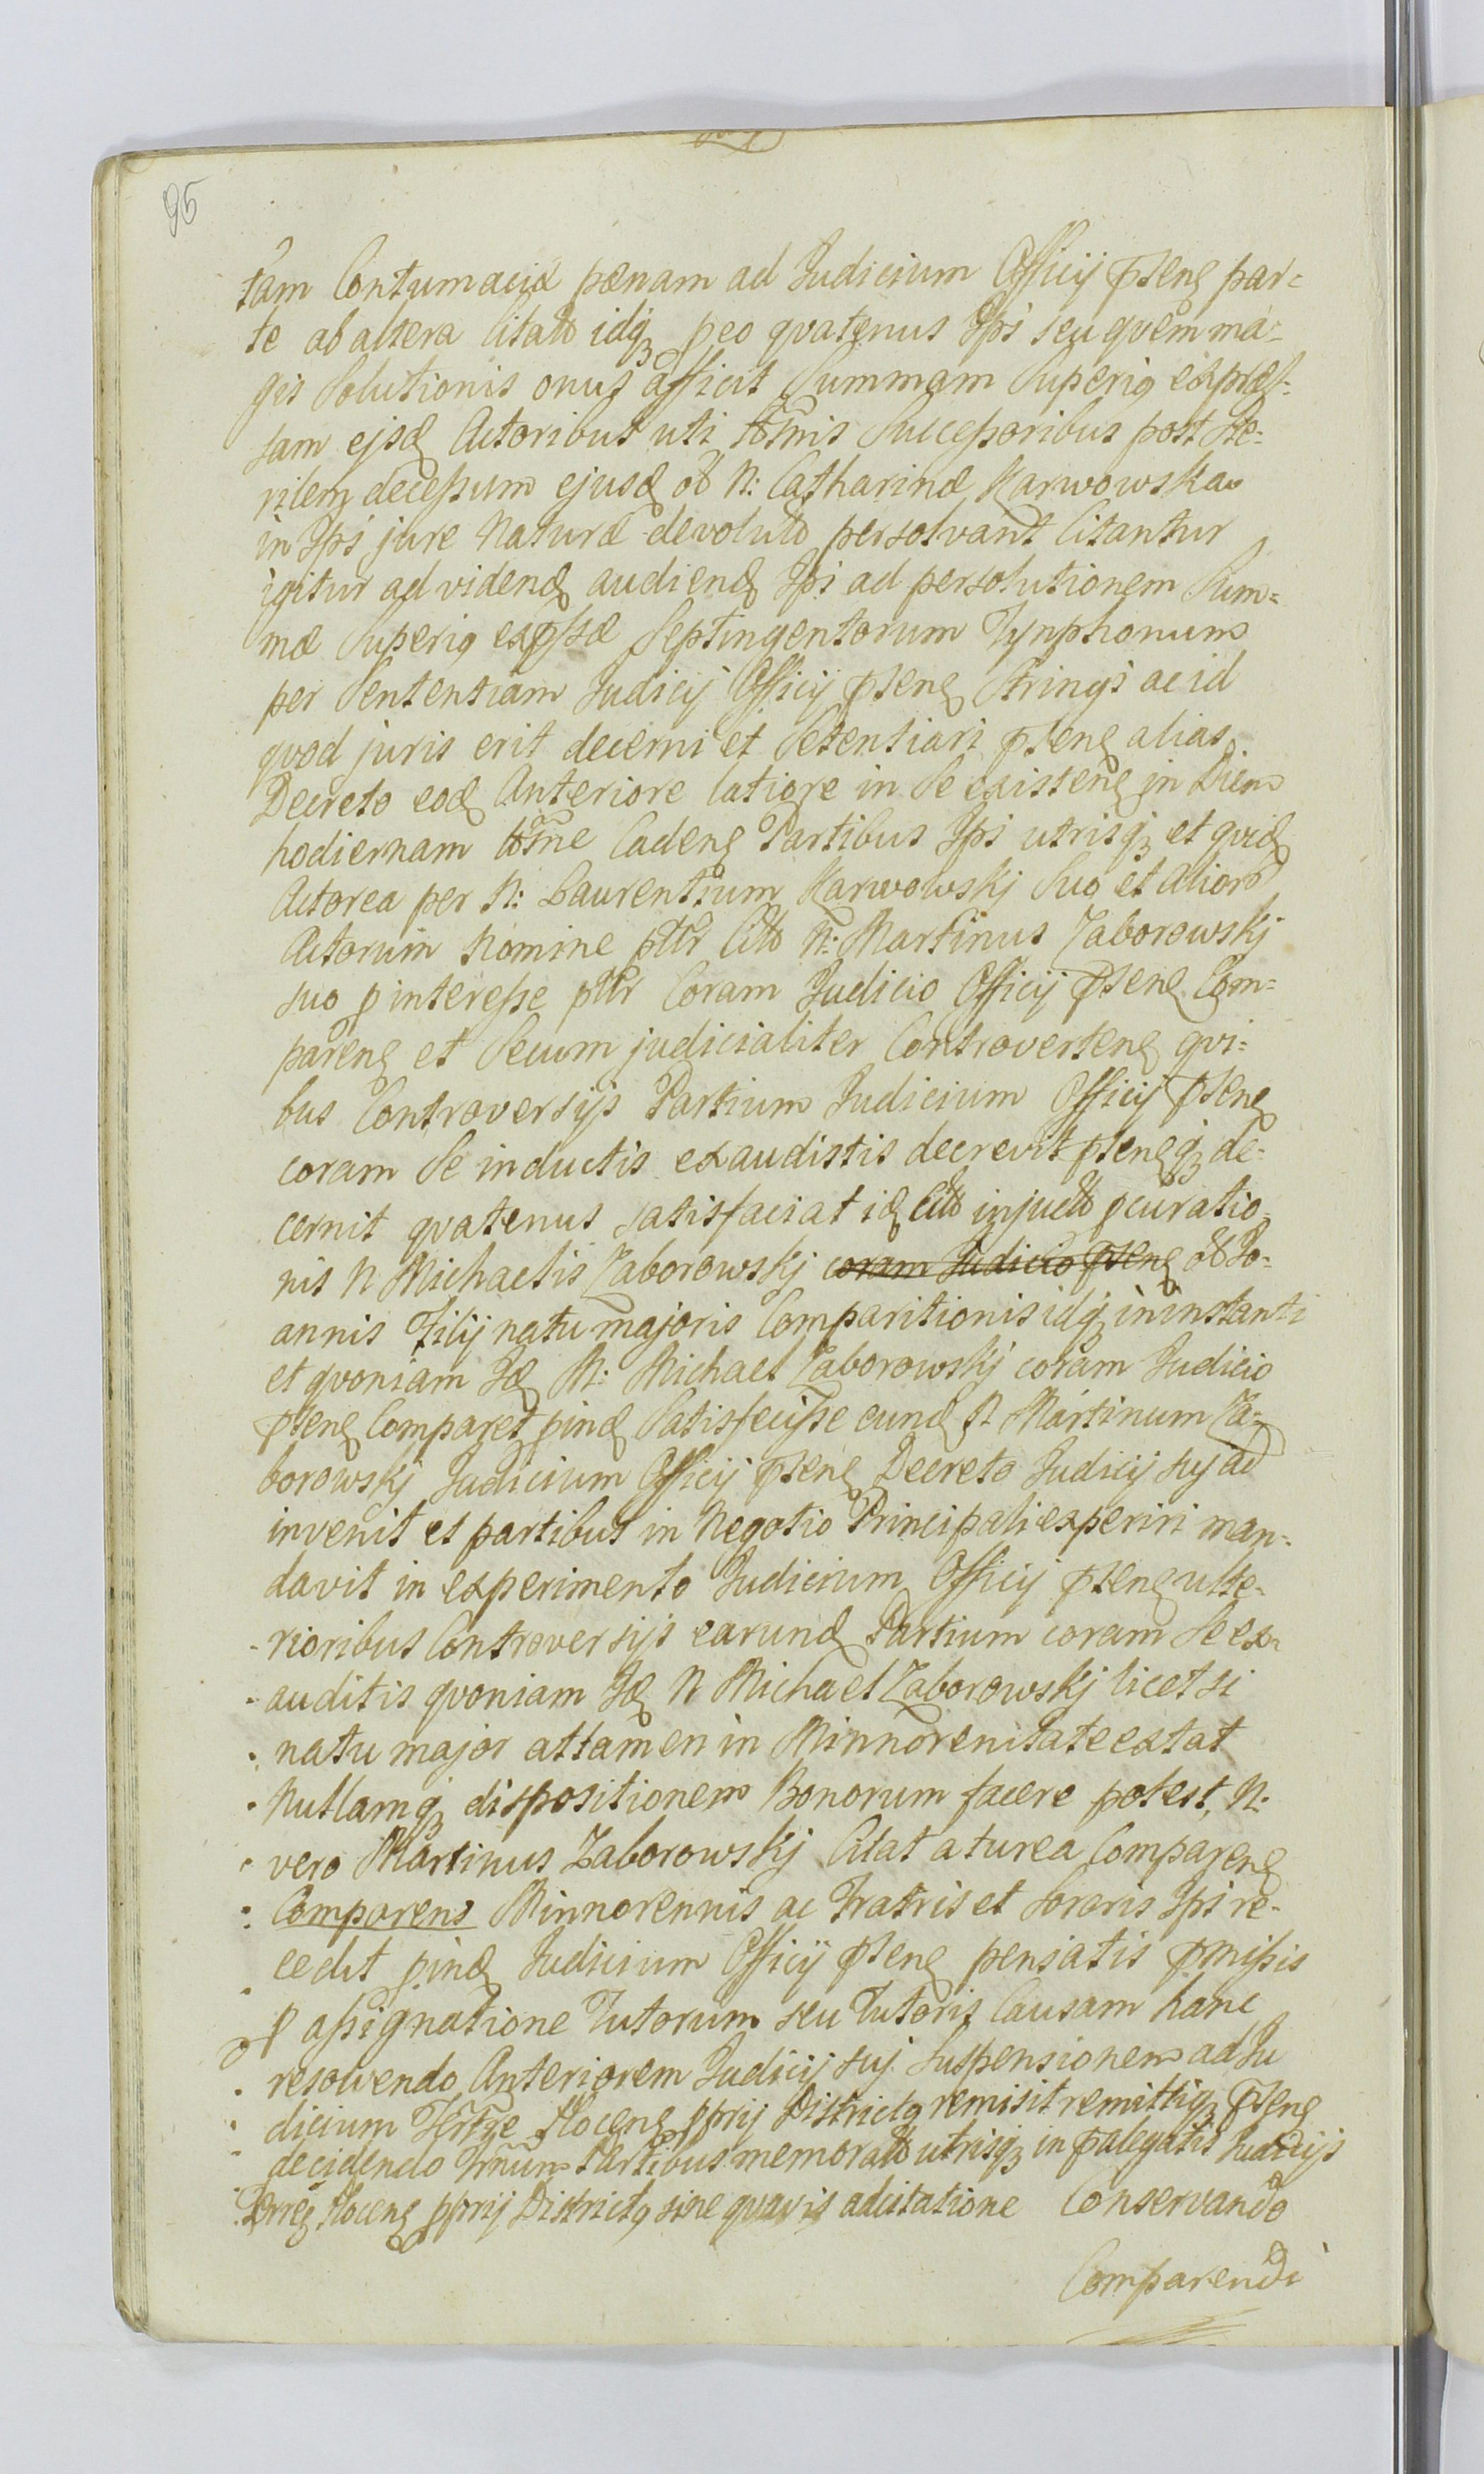 95
tam Contumaciæ pœnam ad Judicium Officij pñtem par=
te ab altera Citato idq peo qvatenus Ipsi seu qvem ma=
gis Solutionis onus afficit Summam Superiq expres=
sam ejsd Actoribus uti Successoribus post Ste=
rilem decessum ejusd ol N: Catharinæ Karwowska
in Ipsi jure Naturæ devoluto persolvant Citantur
igitur ad vidend audiend Ipsi ad persolutionem Sum=
mæ Superiq expssæ Septingentorum Tynphonum
per Sententiam Judicij Officij pñten Stringi ac id
qvod juris erit decerni et Setentiari pñten alias
Decreto eod Anteriore latiore in Se existen in Diem
hodiernam Caden Partibus Ipsi utrisq et qvid
Actorea per N: Laurentium Karwowskj Suo et Alioro
Actorum Nomine pttr Citto N: Martinus Zaborowskj
suo p interesse pttr Coram Judicio Officij pñten Com=
paren et Secum judicialiter Controverten qvi=
bus Controversijs Partium Judicium Officij pñten
coram Se inductis exaudistis decrevit pñtenq de=
cernit qvatenus satisfaciat id Citto injucto pcuratio=
nis N Michaelis Zaborowskj coram Judicio pñten ol Jo=
annis Filij natu majoris Comparitionis idq in instanti
et qvoniam Id N: Michael Zaborowskj coram Judicio
pñten Comparet pind Satisfecisse eund N Martinum Za=
borowskj Judicium Officij pñten Decreto Judicij suj ad
invenit et partibus in Negotio Principali experiri man=
davit in experimento Judicium Officij pñten ulte=
rioribus Controversijs earund Partium coram Se ex=
auditis qvoniam Id N Michael Zaborowskj licet si
natu major attamen in Minnorenitate extat
Nullamq dispositionem Bonorum facere potest, N:
vero Martinus Zaborowskj Citat a turea Comparen
Comparens Minnorennis ac Fratris et Sororis Ipsi re=
cedit pind Judicium Officij pñten pensatis pmissis
p assignatione Tutorum seu Tutoris Causam hanc
resolvendo Anteriorem Judicij suj Suspensionem ad Ju
dicium Trtre Nocen pprij Districtq remisit remittiq pñten
decidendo Trnum Partibus memorato utrisq in palegatis Judicijs
Trreg Nocen pprij Districtq sine qvavis adcitatione Conservando
Comparendi